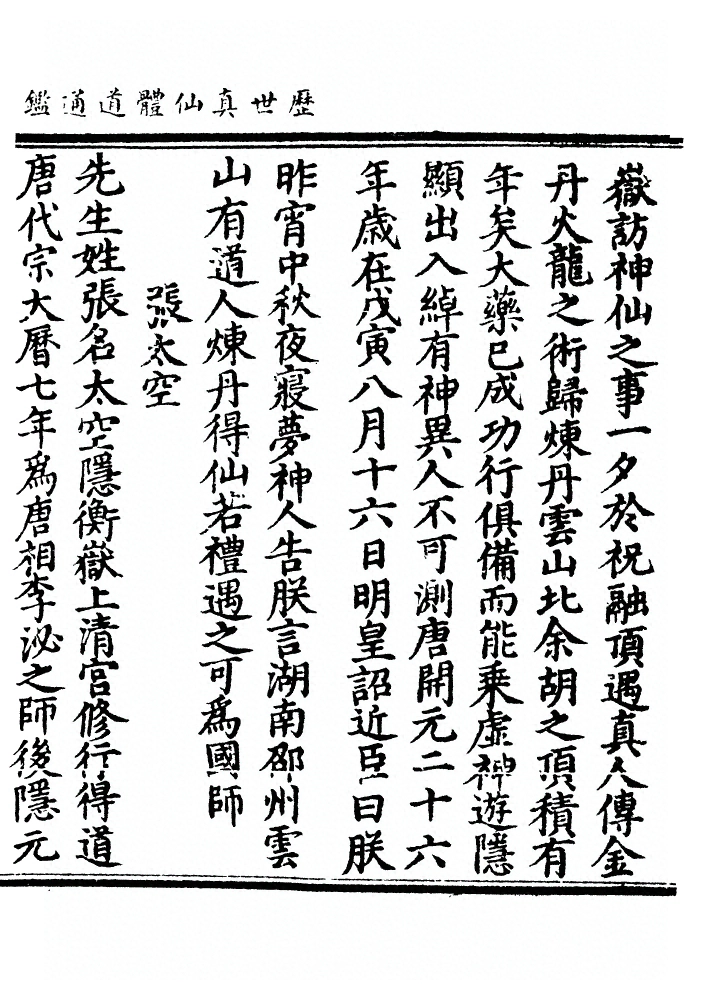 歷世真仙體道通鑑
嶽訪神仙之事一夕於祝融頂遇真人傳金
丹火龍之術歸煉丹雲山北余胡之頂積有
年矣大藥已成功行俱備而能乘虛神遊隱
顯出入綽有神異人不可測唐開元二十六
年歲在戊寅八月十六日明皇詔近臣曰朕
昨宵中秋夜寢夢神人告朕言湖南邵州雲
山有道人煉丹得仙若禮遇之可爲國師
張太空
先生姓張名太空隱衡嶽上清宮修行得道
唐代宗大曆七年爲唐相李泌之師後隱元